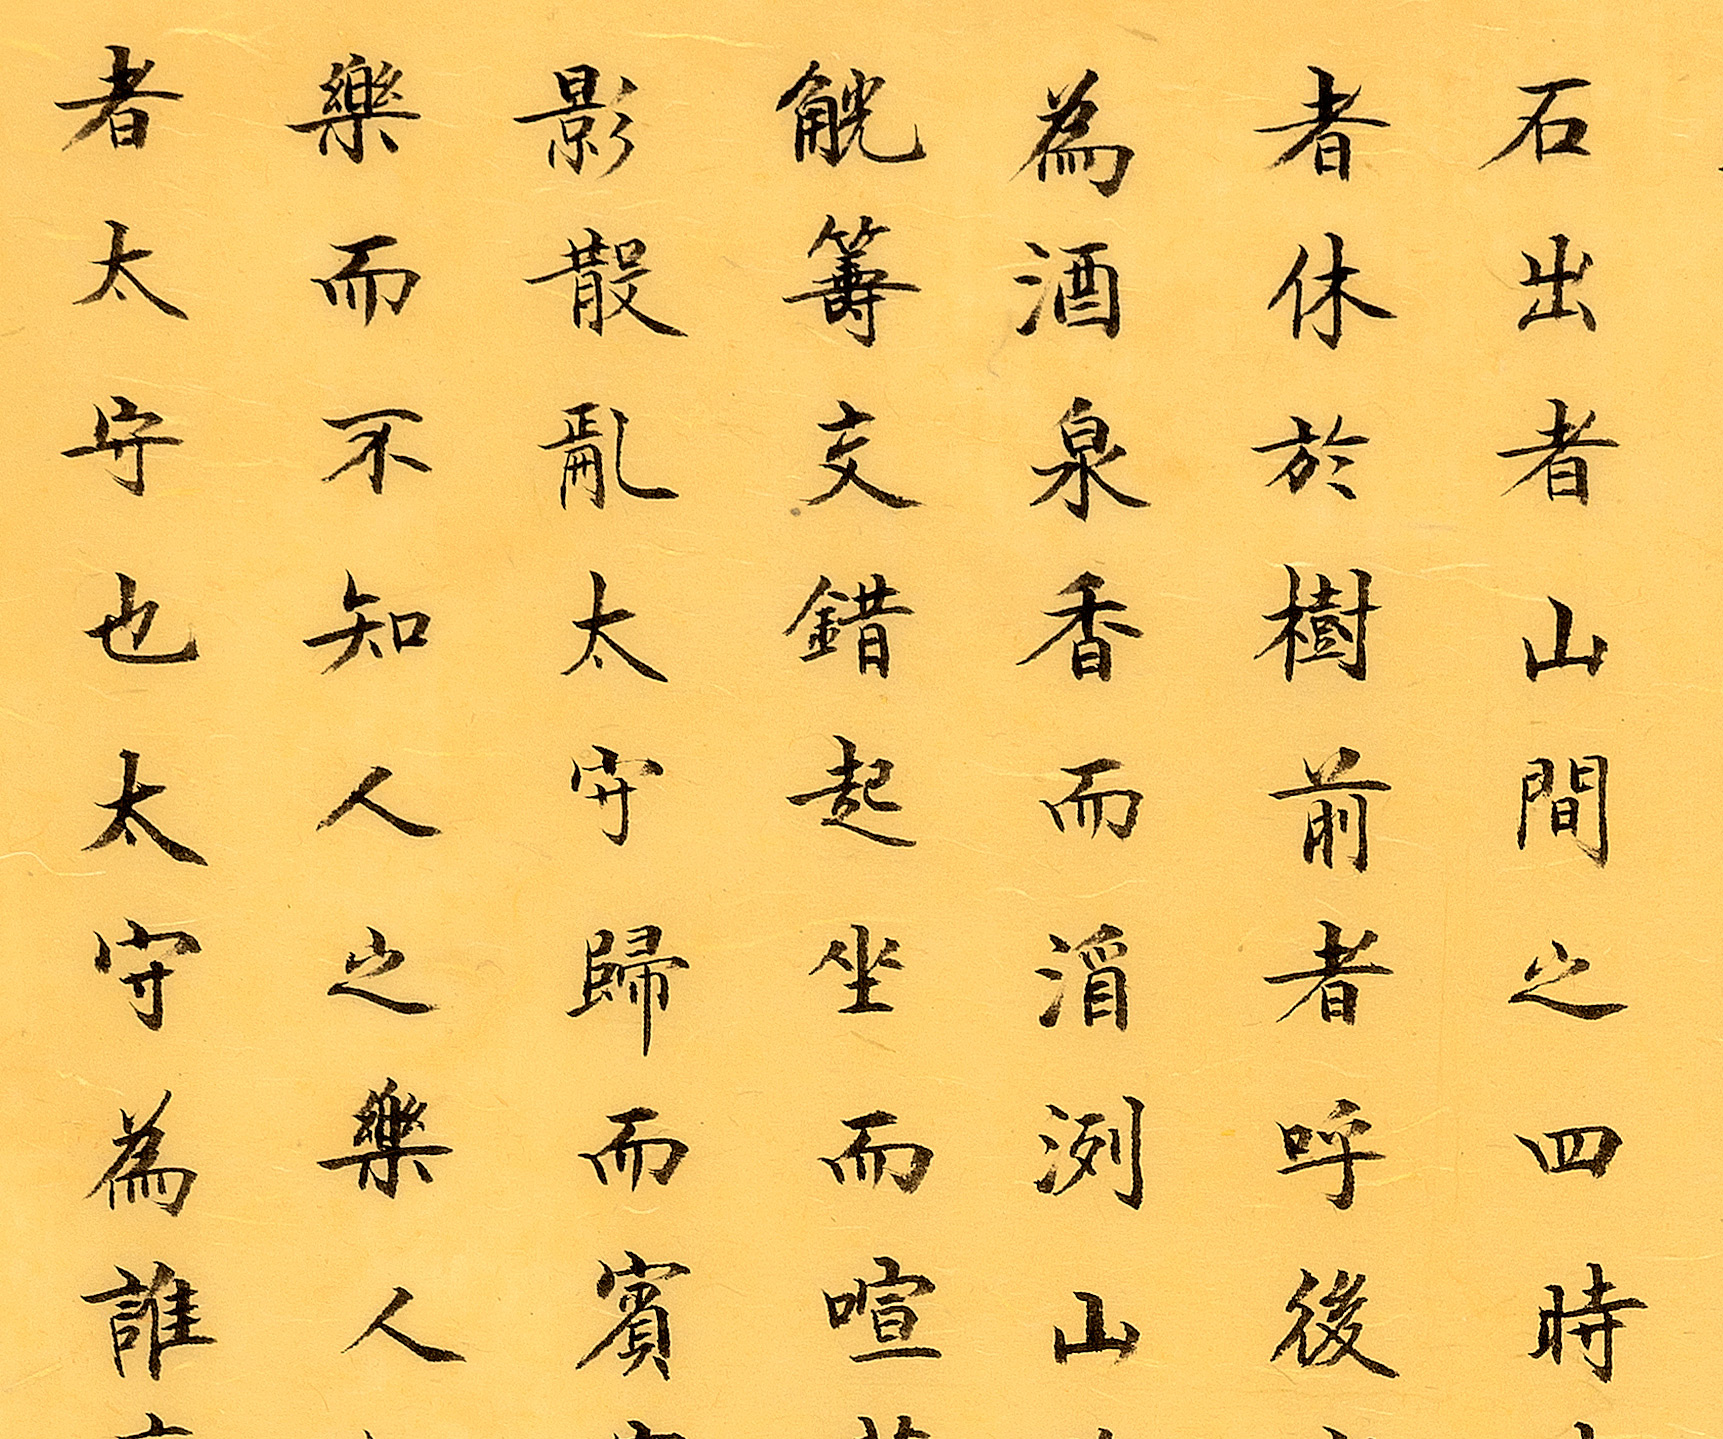 石出者山間之四時
者休於樹前者呼後
為酒泉香而洌山
觥籌交錯起坐而喧
影散亂太守歸而賓
樂而不知人之樂人
者太守也太守為誰